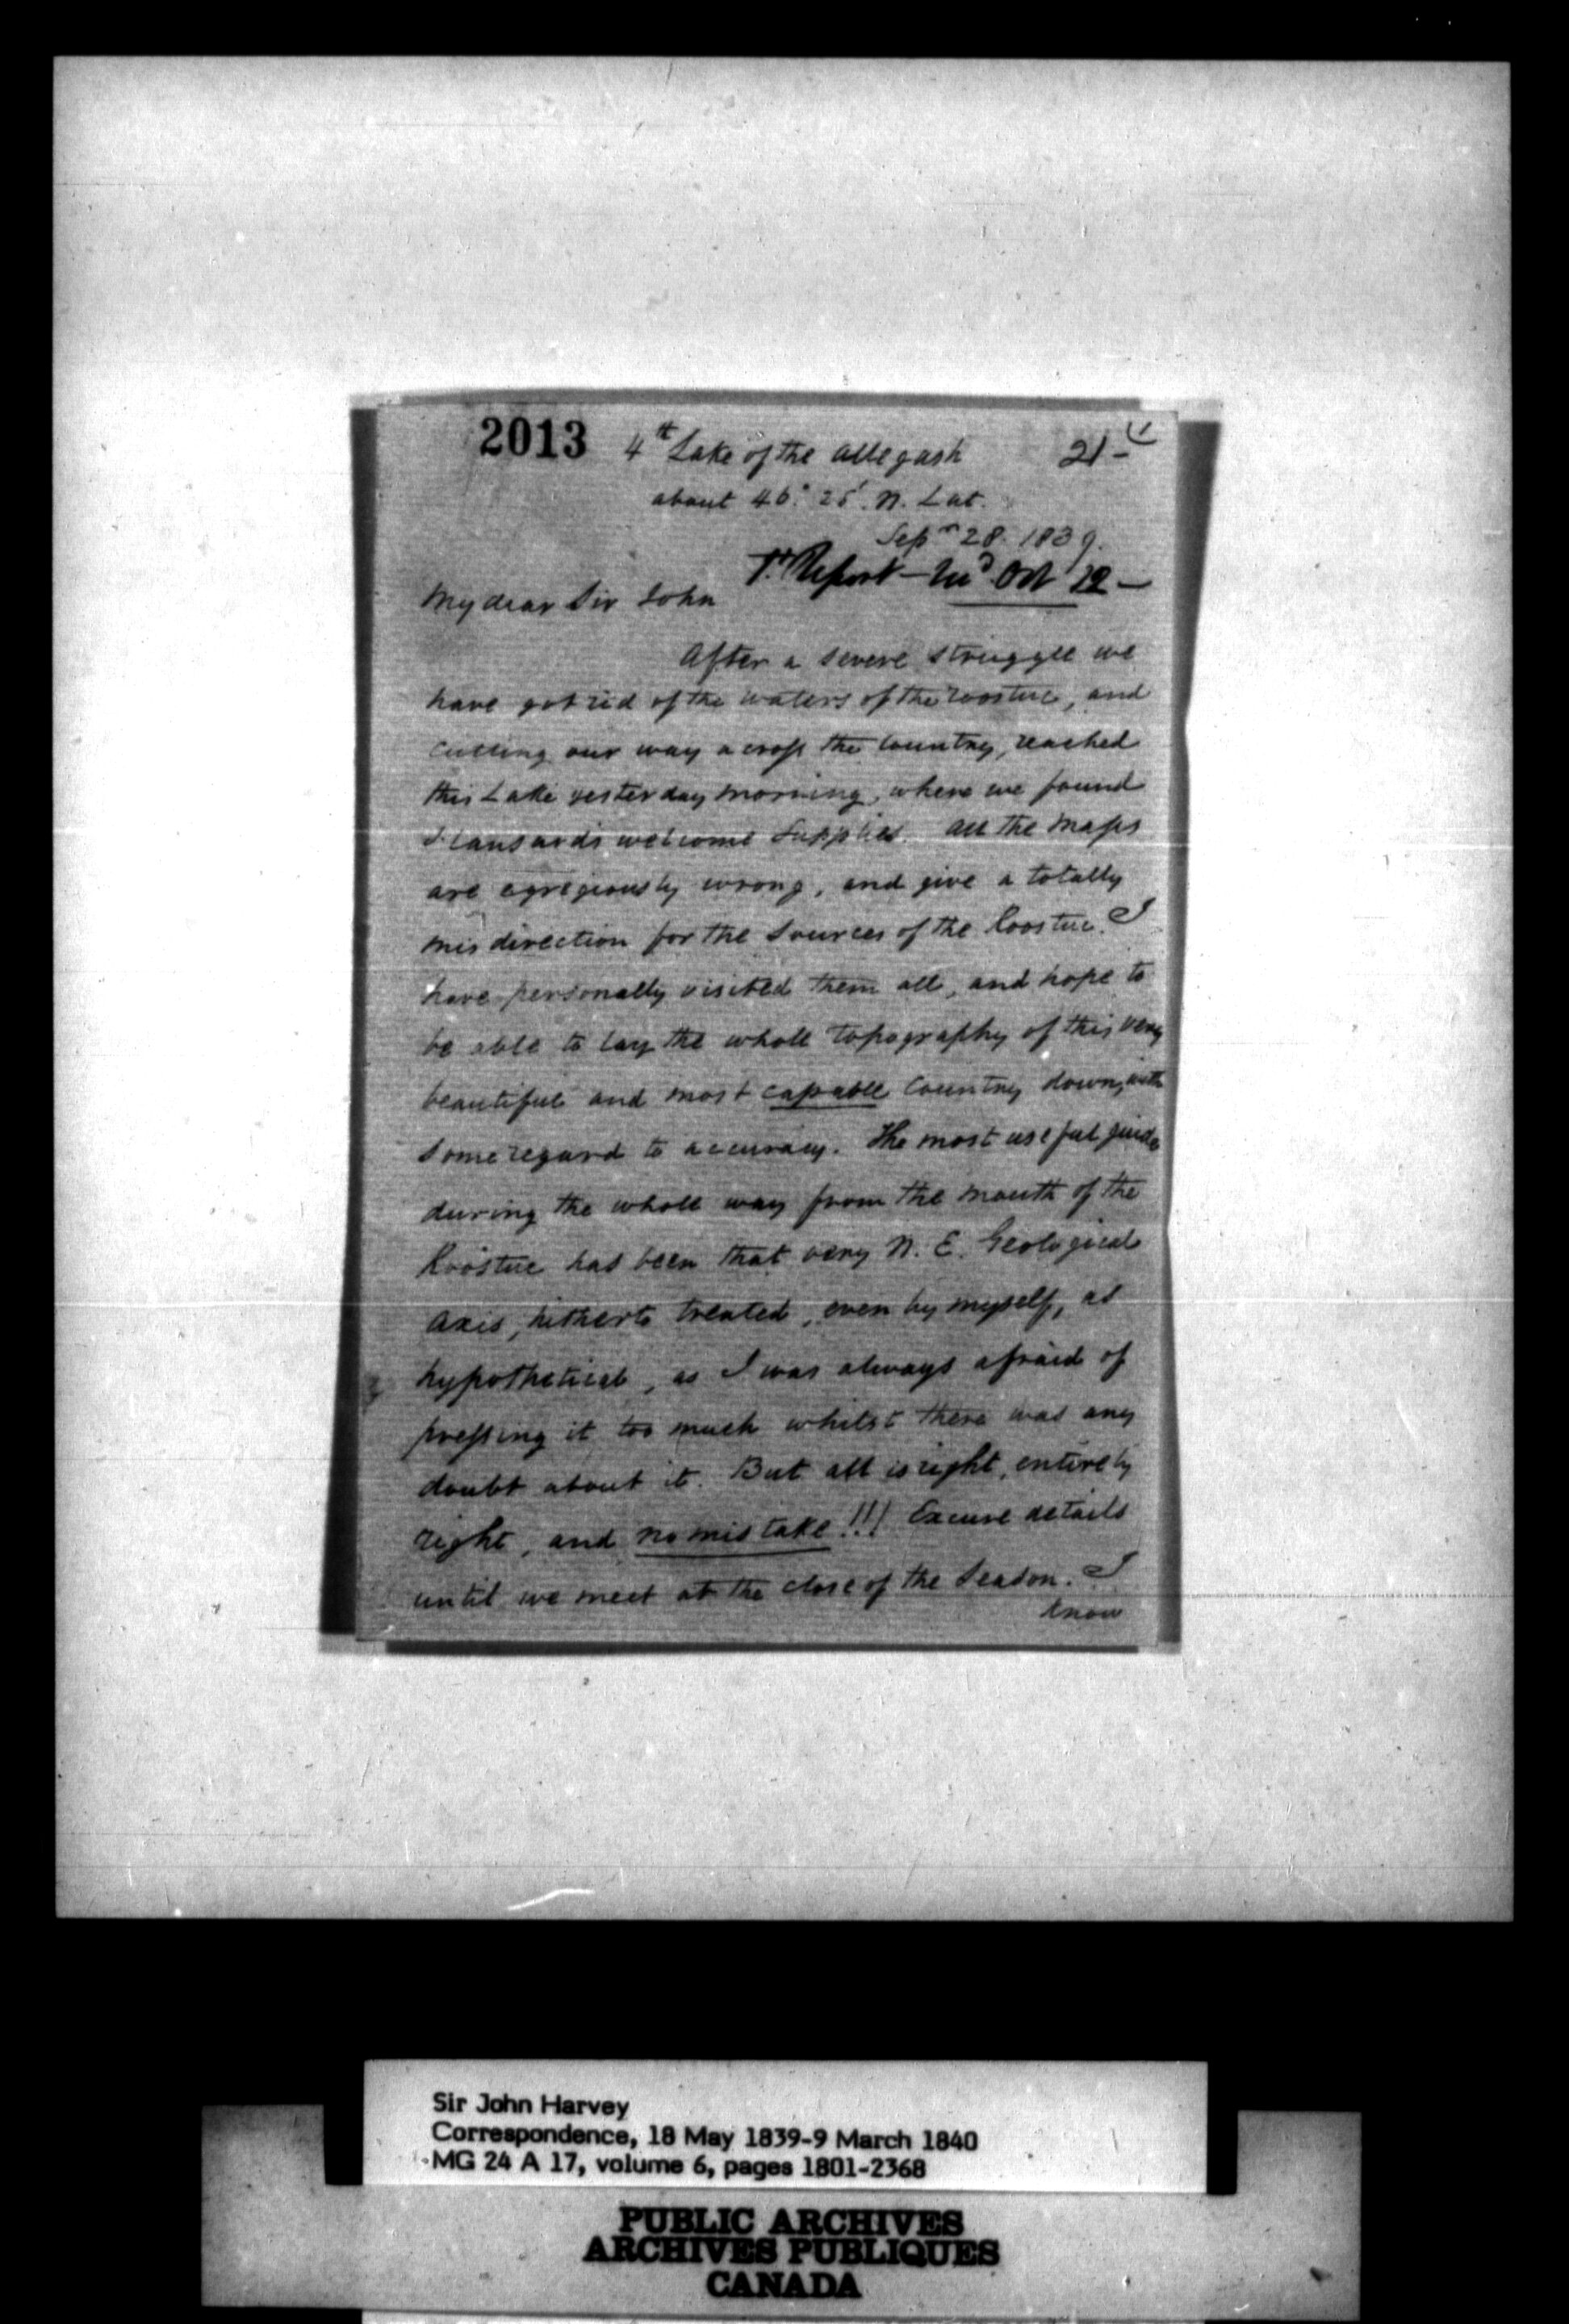 2013 4th Lake of the Allegash 21-
about 46° 25' N. Lat.
Sepr 28. 1839.
1st Report - Recd Oct 12 -
My dear Sir John
After a severe struggle we
have got rid of the waters of the Roostuc, and
cutting our way across the Country, reached
this Lake yesterday morning, where we found
welcome Supplies. All the maps
are egregiously wrong, and give a totally
misdirection for the Sources of the Roostuc. I
have personally visited them all, and hope to
be able to lay the whole topography of this very
beautiful and most capable Country down, with
some regard to accuracy. The most useful guide
during the whole way from the mouth of the
Roostuc has been that very N. E. Geological
axis, hitherto treated, even by myself, as
hypothetical, as I was always afraid of
pressing it too much whilst there was any
doubt about it. But all is right, entirely
right, and no mistake!!! Excuse details
until we meet at the close of the Season. I
know
Sir John Harvey
Correspondence, 18 May 1839-9 March 1840
MG 24 A 17, volume 6, pages 1801-2368
PUBLIC ARCHIVES
ARCHIVES PUBLIQUES
CANADA